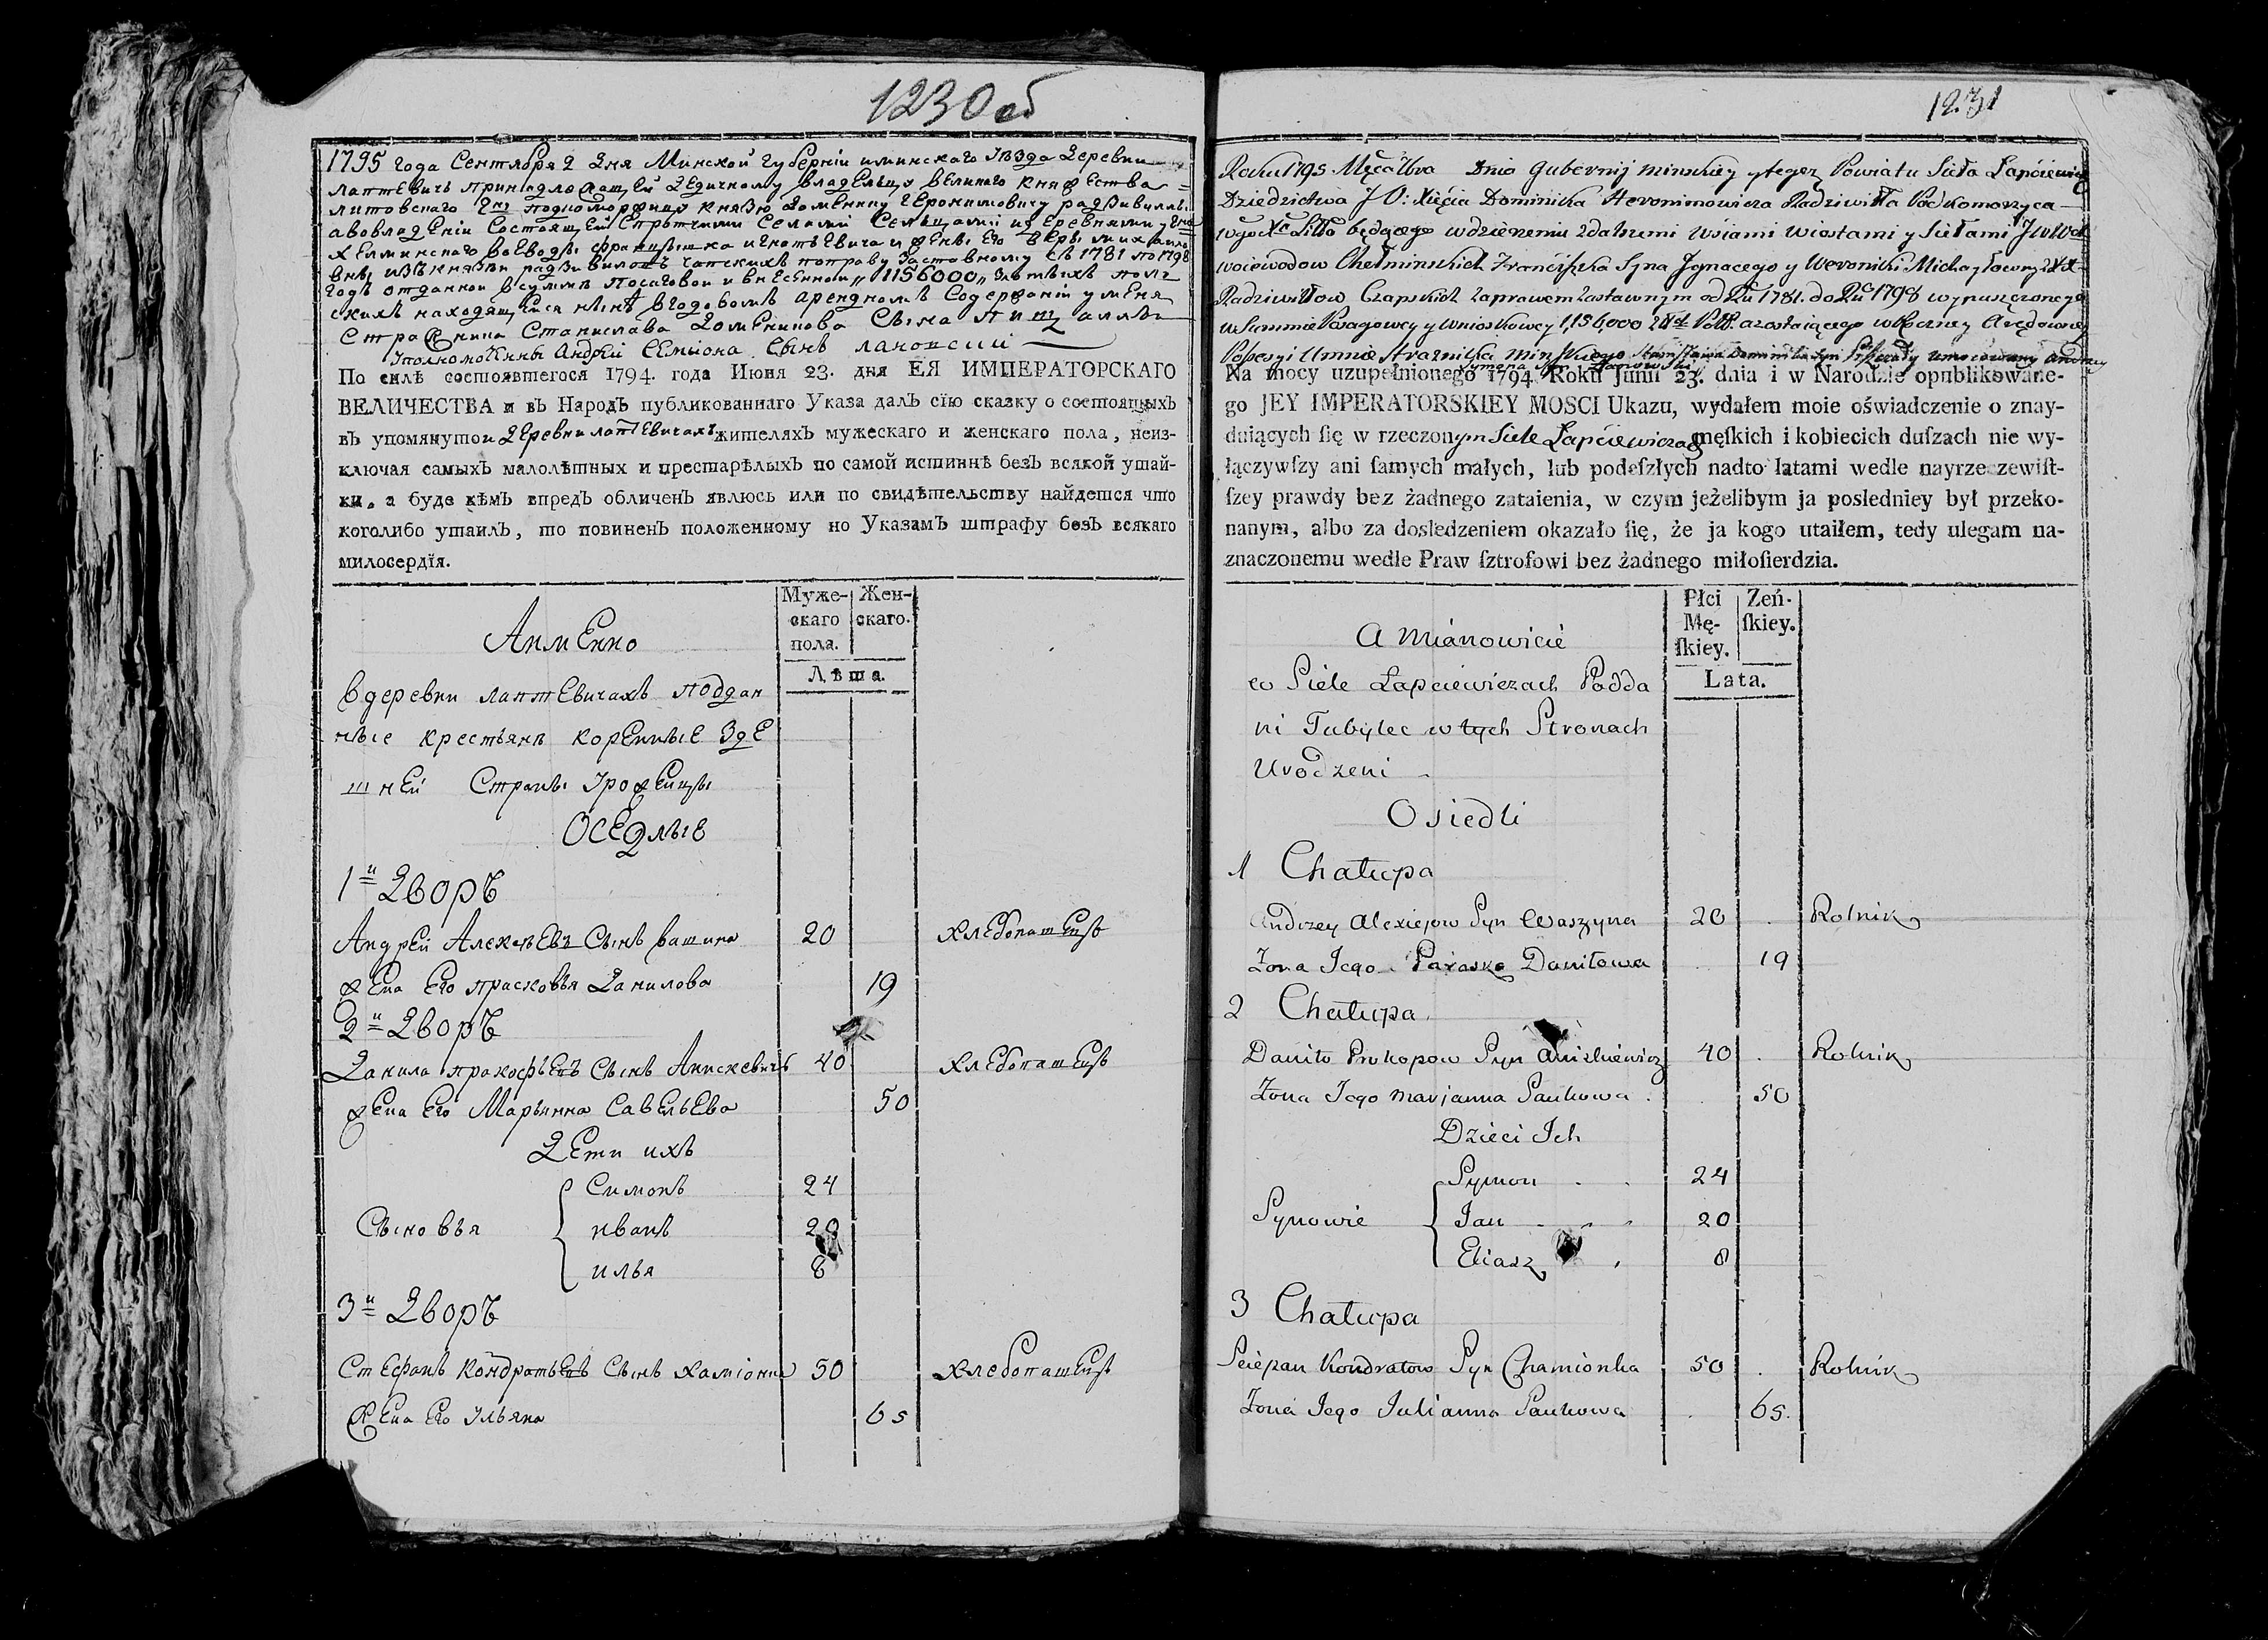 1230 об
1795 года Сентября 2 дня Минской губернии и минскаго уезда деревни
Лаптевичь принадлежащей дедичному владельцу великаго княжества
литовскаго подкоморжицу князю доменику героним овичу радзивиллу
а во владении состоящей с протчими селами сельцами и деревнями
хелминскаго воеводы францышка игнатьевича и жены его веры михайло
вны изъ князей радзивиловъ чапскихъ по праву заставному съ 1781 по 1798
годъ отданной в сумме посаговой и внесенной „1156000„ злотыхъ поль
скихъ находящейся ныне в годовомъ арендномъ содержании у меня
стражника Станислава Доменикова Сына
Уполномоченны Андрей Семиона сынъ лановский
По силѣ состоявшегося 1794. года Июня 23. дня ЕЯ ИМПЕРАТОРСКАГО
ВЕЛИЧЕСТВА и въ Народъ публикованнаго Указа далъ сїю сказку о состоящыхъ
въ упомянутои деревни лаптевичахъ жителяхъ мужескаго и женскаго пола, неиз-
ключая самыхъ малолѣтныхъ и престарѣлыхъ по самой истиннѣ безъ всякой утай-
ки. а буде кѣмъ впредъ обличенъ явлюсь или по свидѣтельству найдется что
коголибо утаилъ, то повиненъ положенному по Указамъ штрафу безъ всякаго
милосердїя.
Муже-скаго пола. Жен-скаго.
Лѣта.
А именно
в деревни лаптевичахъ поддан
ные крестьянѣ коренные зде
шней Страны Урожейцы
Оседлые
1й Дворъ
Андрей Алексѣевъ Сынъ вашина 20 хлебопашецъ
жена Его прасковья Данилова 19
2й Дворъ
Данила прокофьевъ Сынъ Анискевичъ 40 хлебопашецъ
жена Его Марьянна Савельева 50
Дети ихъ
Сыновья
Симонъ 24
иванъ 20
илья 8
3й Дворъ
Стефанъ Кондратьевъ Сынъ хамионка 50 хлебопашецъ
жена Его Ульяна 65
1231
Roku 1795 Męca 7bra Dnia Gubernij Minskiey y tegoz Powiatu Sieła Łapciewicz
Dziedzictwa J O: Xięcia Dominika Heronimowicza Radziwiłła Podkomorzyca
będącego w dzierzeniu z dalszemi wsiami wiostami y Siełami
Woiewodow Chełminskich Franciszka Syna Jgnacego y Weroniki Michayłowny
Radziwiłłow Czapskich zaprawem zastawnym od Ru 1781. do Ru 1798 wypuszczonego
w Summie Posagowey y Wnioskowey 1,156,000 zostaiącego w Roczney Arędowney
Possesyi Umnie Straznika Minskiego Stanisława Dominika Syn umocowany Andrzey
Na mocy uzupełnionego 1794 Roku Junii 23. dnia i w Narodzie opublikowane-
go JEY IMPERATORSKIEY MOSCI Ukazu, wydałem moie oświadczenie o znay-
duiących ſię w rzeczonym Siele Łapciewiczach męſkich i kobiecich duſzach nie wy-
łączywſzy ani ſamych małych, lub podeſzłych nadto latami wedle nayrzeczewiſt-
ſzey prawdy bez żadnego zataienia, w czym jeżelibym ja posledniey był przeko-
nanym, albo za dosledzeniem okazało ſię, że ja kogo utaiłem, tedy ulegam na-
znaczonemu wedle Praw ſztrofowi bez żadnego miłoſierdzia.
Płci Mę-ſkiey. Zeń-ſkiey.
Lata.
A Mianowicie
w Siele Łapciewiczach Podda
ni Tubylec w tych Stronach
Urodzeni
Osiedli
1 Chałupa
Andrzey Alexiejow Syn Waszyna 20 Rolnik
Zona Jego Paraska Daniłowa 19
2 Chałupa
Daniło Prokopow Syn Aniskiewicz 40 Rolnik
Zona Jego Marjanna Saukowa 50
Dzieci Jch
Synowie
Symon 24
Jan 20
Eliasz 8
3 Chałupa
Sciepan Kondratow Syn Chamionka 50 Rolnik
Zona Jego Julianna Saukowa 65.